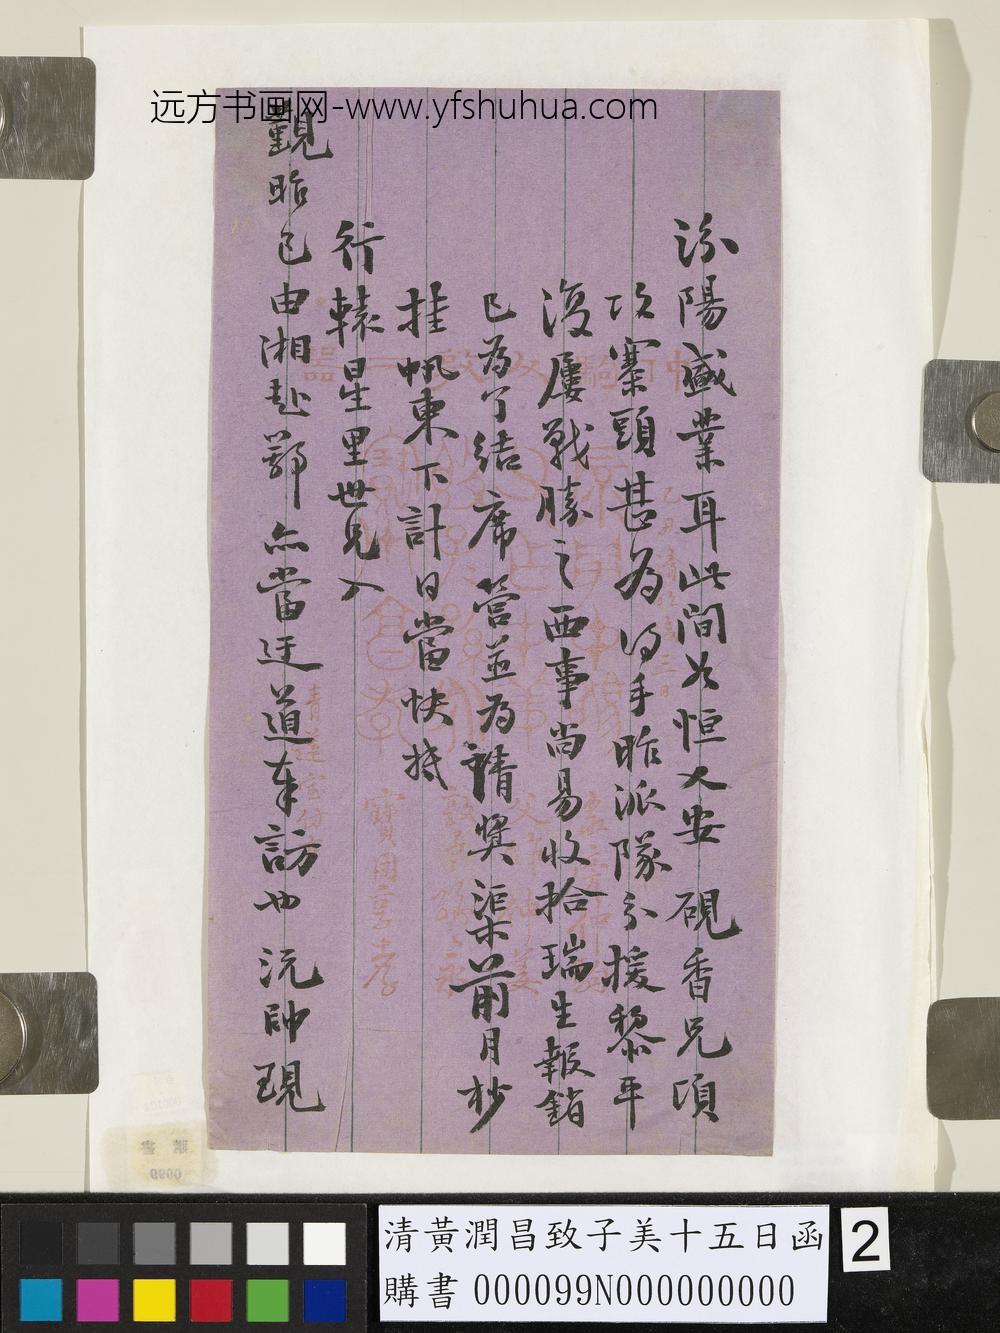 远方书画网-www.yfshuhua.com
汾陽盛業耳此間如恒人安硯香兄頃
攻寨頭甚為得手昨派隊分援黎平
復屢戰勝之西事尚易收拾瑞生報銷
已為了結席營並為請獎渠前月杪
挂帆東下計日當快抵
行轅星里世兄入
覲昨已由湘赴鄂亦當迂道奉訪也沅帥現
清黃潤昌致子美十五日函
購書 000099N000000000
2